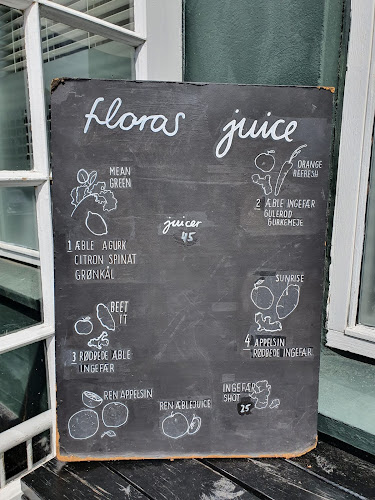 floras juice
MEAN
GREEN
1 ÆBLE AGURK
CITRON SPINAT
GRØNKÅL
ORANGE
REFRESH
2 ÆBLE INGEFÆR
GULEROD
GURKEMEJE
juicer
45
BEET
IT
3 RØDBEDE ÆBLE
INGEFÆR
SUNRISE
4 APPELSIN
RØDBEDE INGEFÆR
REN APPELSIN
REN ÆBLEJUICE
INGEFÆR
SHOT
25